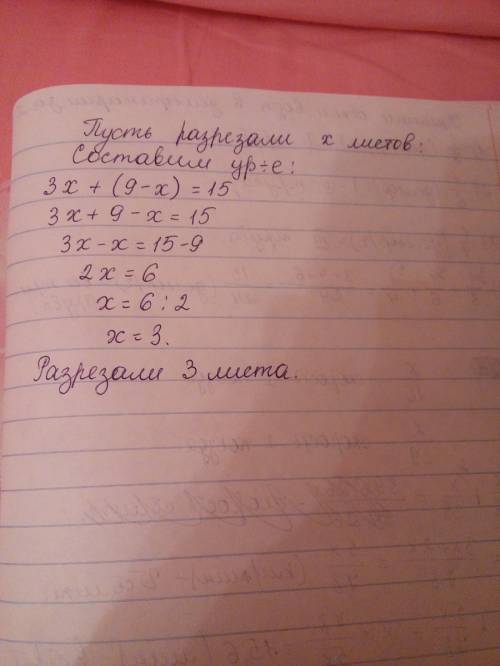 Пусть разрезали x листов:
Составим ур÷е:
3x + (9-x) = 15
3x + 9 - x = 15
3x - x = 15 - 9
2x = 6
x = 6 : 2
x = 3.
Разрезали 3 листа.